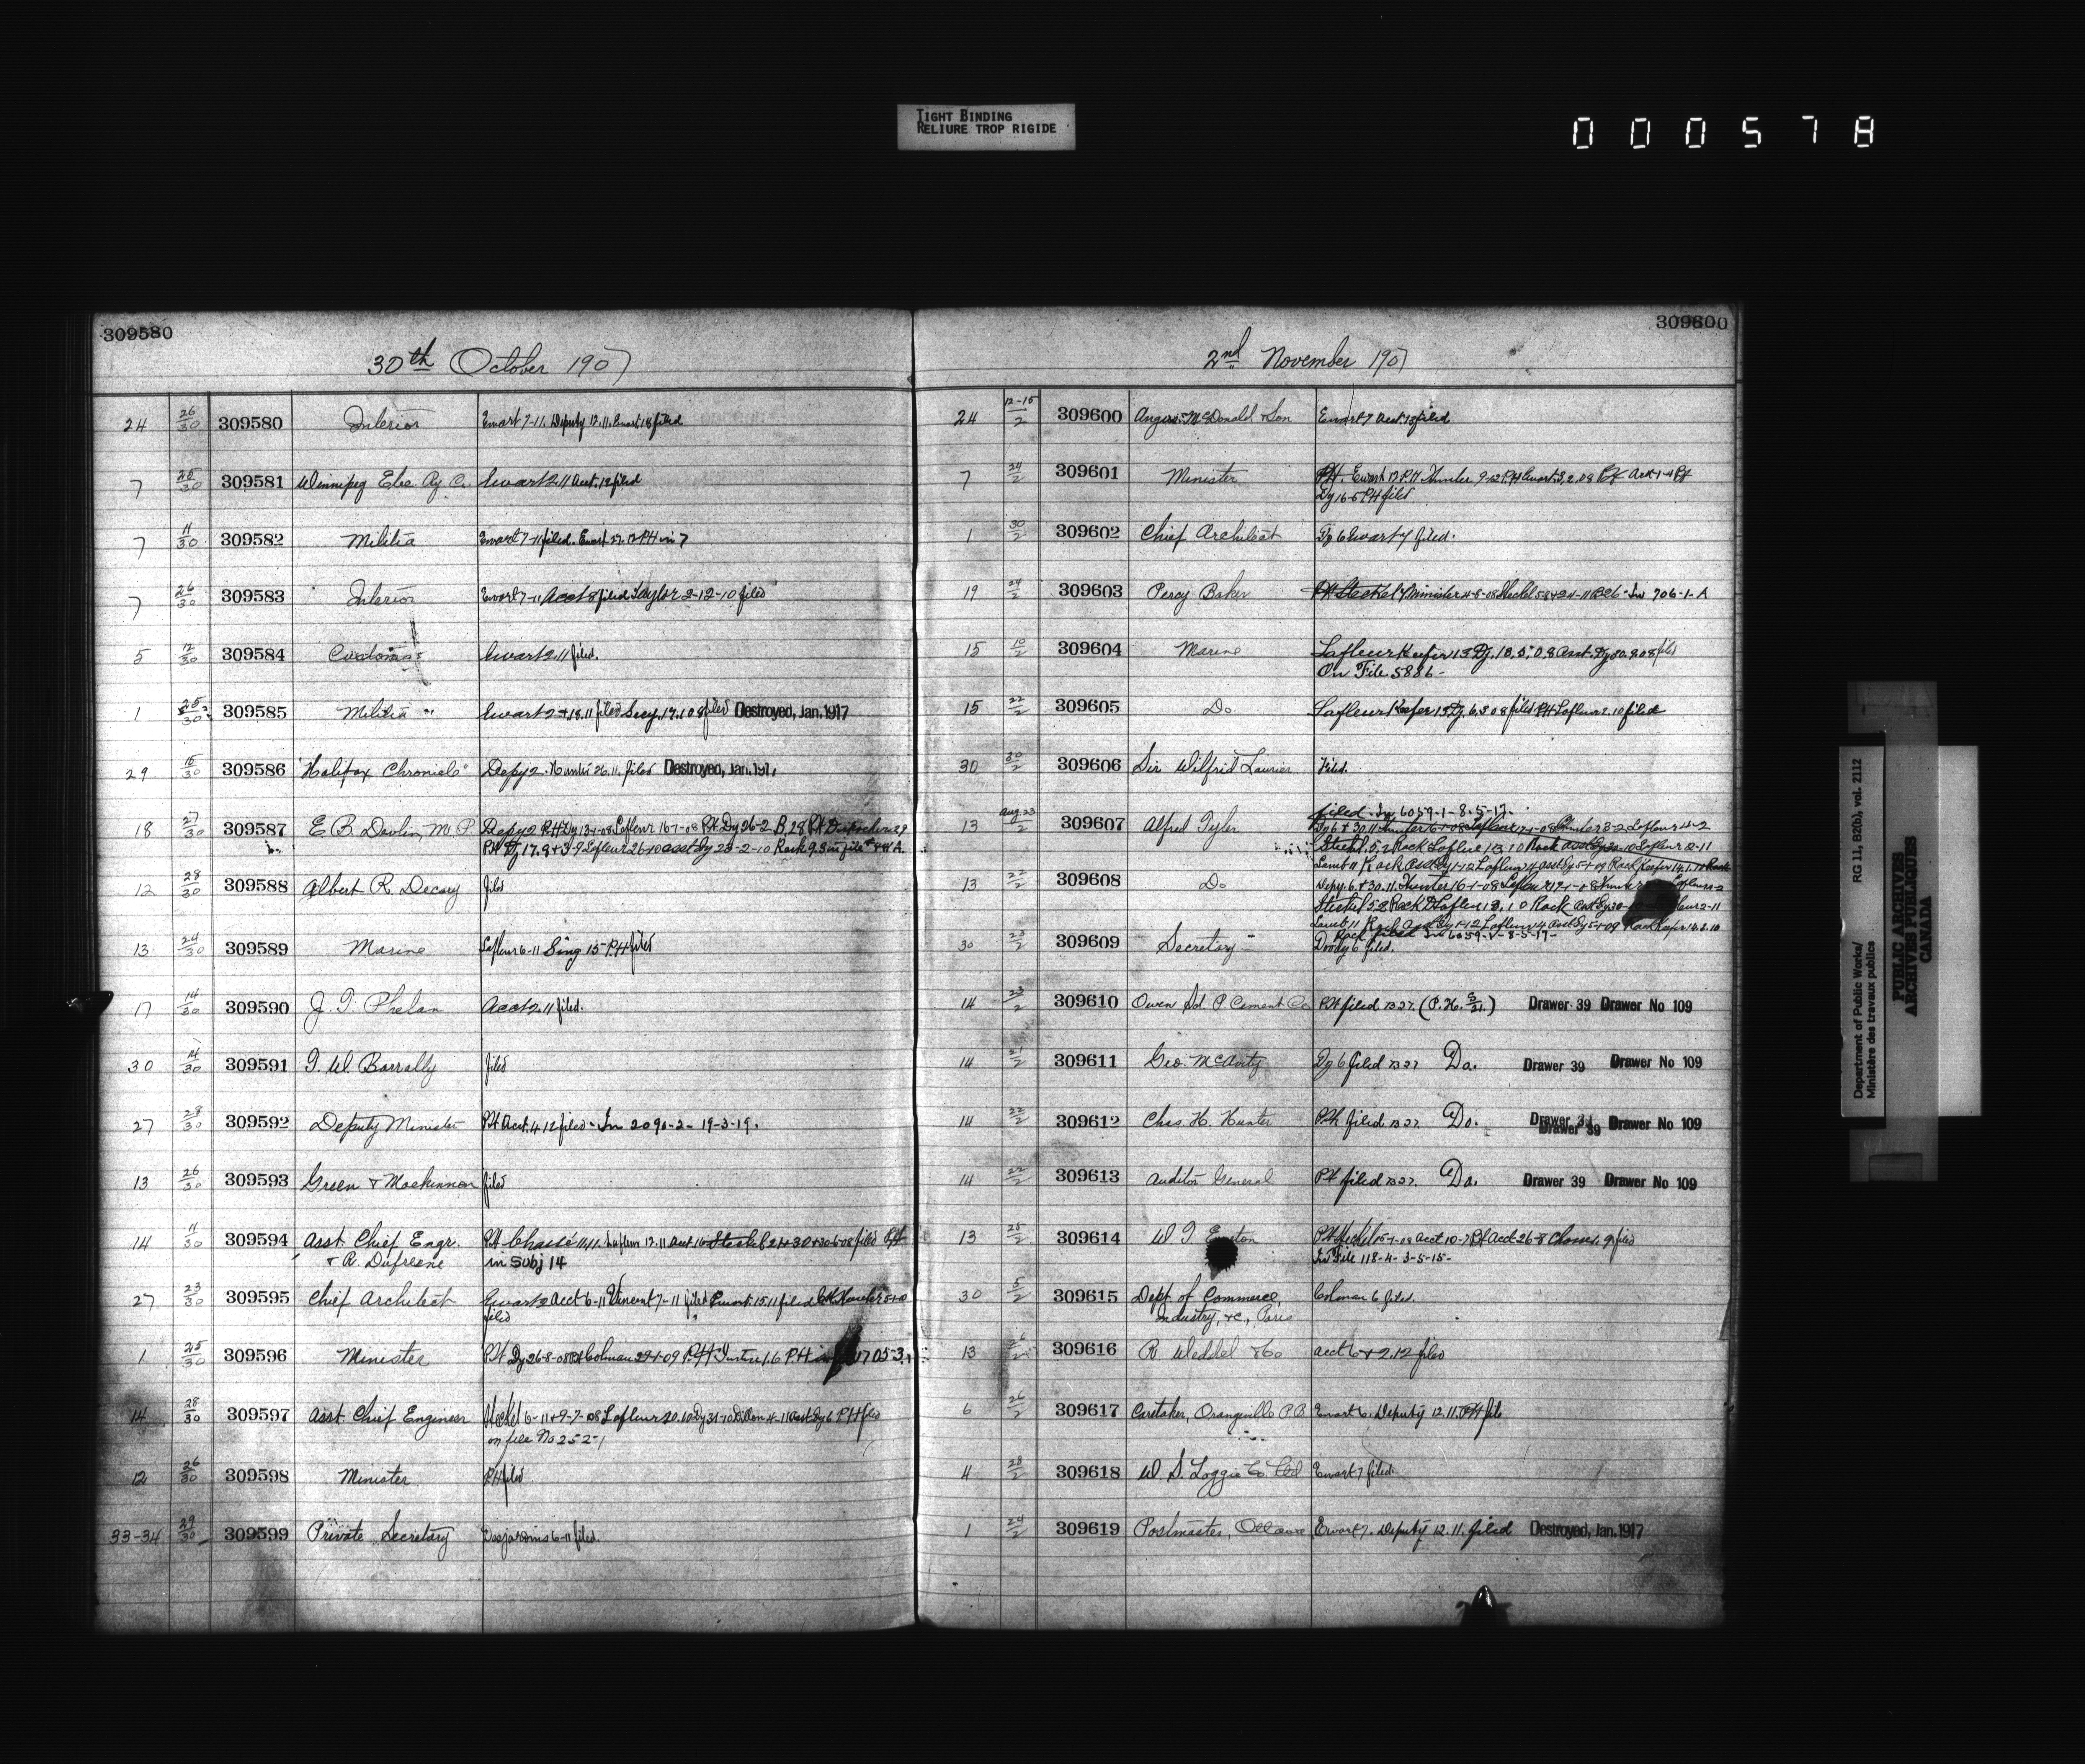 TIGHT BINDING
RELIURE TROP RIGIDE
000578
309580
30th October 1907
24 26/30 309580 Interior Ewart 7-11. Deputy 12.11. Ewart 18 filed
7 25/30 309581 Winnipeg Elec. Ry Co. Ewart 2.11 Acct. 12 filed
7 11/30 309582 Militia Ewart 7-11 filed. Ewart 27.12 PH in 7
7 26/30 309583 Interior Ewart 7-11 Acct 8 filed Taylor 2-12-10 filed
5 12/30 309584 Customs Ewart 2.11 filed.
1 30 309585 Militia Ewart 2+18.11 filed Secy. 17.1 08 filed Destroyed, Jan. 1917
29 15/30 309586 "Halifax Chronicle" Depy 2. Hunter 26.11. filed Destroyed, Jan. 191
18 27/30 309587 E. B. Devlin, M. P. Depy 2 PH Dy 13-1-08 Lafleur 16-1-08 PH Dy 26-2 B. 28 PH
PH Dy 17.9+3-9 Lafleur 26-10 asst Dy 23-2-10 Rack 9.3 in file
12 28/30 309588 Albert R. Decary filed
13 24/30 309589 Marine Lafleur 6-11 Sing 15 PH filed
17 14/30 309590 J. T. Phelan Acct 2.11 filed.
30 14/30 309591 T. W. Barrally filed
27 28/30 309592 Deputy Minister PH Acct. 4 12 filed - In 2090-2- 19-3-19.
13 26/30 309593 Green & Mackinnon filed
14 11/30 309594 Asst. Chief Engr. PH Chassé 11.11. Lafleur 12.11 Acct 16 Steckel 21+30+30-6-08 filed PH
& R. Dufresne in Subj 14
27 23/30 309595 Chief Architect Ewart 2 Acct 6-11 Vincent 7-11 filed Ewart 15.11 filed
filed
1 25/30 309596 Minister PH Dy 26-8-08 PH Colman 29-1-09 PH 1.6 PH in 1705-3
14 28/30 309597 Asst. Chief Engineer Steckel 6-11+9-7-08 Lafleur 20.10 Dy 31-10 Dillon 4-11 Asst Dy 6 PH filed
on file No 252-1
12 26/30 309598 Minister PH filed
33-34 29/30 309599 Private Secretary Desjardins 6-11 filed.
309600
2nd November 1907
24 12-15/2 309600 Angus McDonald & Son Ewart 7 Acct. 13 filed
7 24/2 309601 Minister PH. Ewart 13 PH Hunter 9-12 PH Ewart 3.2.08
Dy 16-5 PH filed
1 30/2 309602 Chief Architect Dy 6 Ewart 7 filed.
19 24/2 309603 Percy Baker PH Steckel 7 Minister 4-8-08 Steckel 5-8+24-11 B26 - In 706-1-A
15 10/2 309604 Marine Lafleur Keefer 13 Dy. 18.5.08 Asst. Dy 30.9.08 filed
On File 5886-
15 22/2 309605 Do Lafleur Keefer 13 Dy. 6.3 08 filed PH Lafleur 2.10 filed
30 30/2 309606 Sir Wilfrid Laurier Filed.
filed. In 6059-1-8-5-17.
13 Aug 23/2 309607 Alfred Tyler Dy 6+30.11 Hunter 16-1-08 Lafleur 17-1-08 Hunter 3-2 Lafleur 4-2
Steckel 5-2 Rack Lafleur 13.10 Rack Asst Dy 30-10 Lafleur 2-11
Lamb 11 Rack Asst Dy 1-12 Lafleur 14 Asst Dy 5-1-09 Rack Keefer 14.1.10 Rack
13 22/2 309608 Do Depy. 6+30.11. Hunter 16-1-08 Lafleur 17-1-08 Hunter
Steckel 5.2 Rack Lafleur 13.10 Rack Asst Dy 30-10 Lafleur 2-11
Lamb 11 Rack Asst Dy 1-12 Lafleur 14 Asst Dy 5-1-09 Rack Keefer
Rack filed In 6059-1-8-5-17-
30 23/2 309609 Secretary Doody 6 filed.
14 23/2 309610 Owen Sd. P. Cement Co PH filed B 27. (P.H. 5/21.) Drawer 39 Drawer No 109
14 21/2 309611 Geo. McAvity Dy 6 filed B 27 Do. Drawer 39 Drawer No 109
14 22/2 309612 Chas. H. Hunter PH filed B 27 Do. Drawer 39 Drawer No 109
14 22/2 309613 Auditor General PH filed B 27. Do. Drawer 39 Drawer No 109
13 25/2 309614 W T Easton PH Steckel 15-1-08 Acct 10-7 PH Acct 26-8 Chassé 9 filed
In File 118-4-3-5-15-
30 5/2 309615 Dept of Commerce, Colman 6 filed.
Industry, &c., Paris
13 26/2 309616 R Weddel & Co Acct 6+2.12 filed
6 26/2 309617 Caretaker, Orangeville P.B Ewart 6. Deputy 12.11. PH file
4 28/2 309618 W. S. Loggie Co Ltd Ewart 7 filed.
1 24/2 309619 Postmaster, Ottawa Ewart 7. Deputy 12.11. filed Destroyed, Jan. 1917
Department of Public Works/ RG 11, B2(b), vol. 2112
Ministère des travaux publics
PUBLIC ARCHIVES
ARCHIVES PUBLIQUES
CANADA